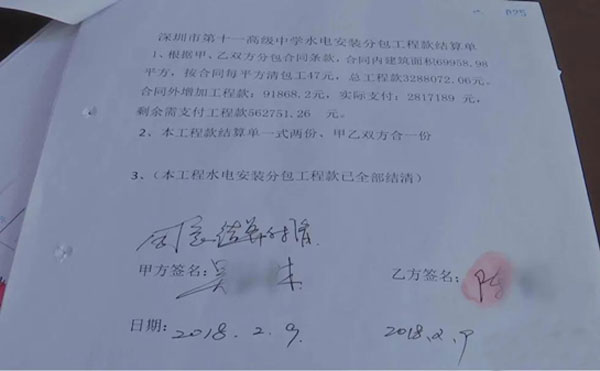 825
深圳市第十一高级中学水电安装分包工程款结算单
1、根据甲、乙双方分包合同条款，合同内建筑面积69958.98
平方，按合同每平方清包工47元，总工程款3288072.06元。
合同外增加工程款：91868.2元，实际支付：2817189 元，
剩余需支付工程款562751.26 元。
2、本工程款结算单一式两份、甲乙双方合一份
3、（本工程水电安装分包工程款已全部结清）
同意结算付清
甲方签名：吴 朱 乙方签名：
日期：2018.2.9 2018.2.9